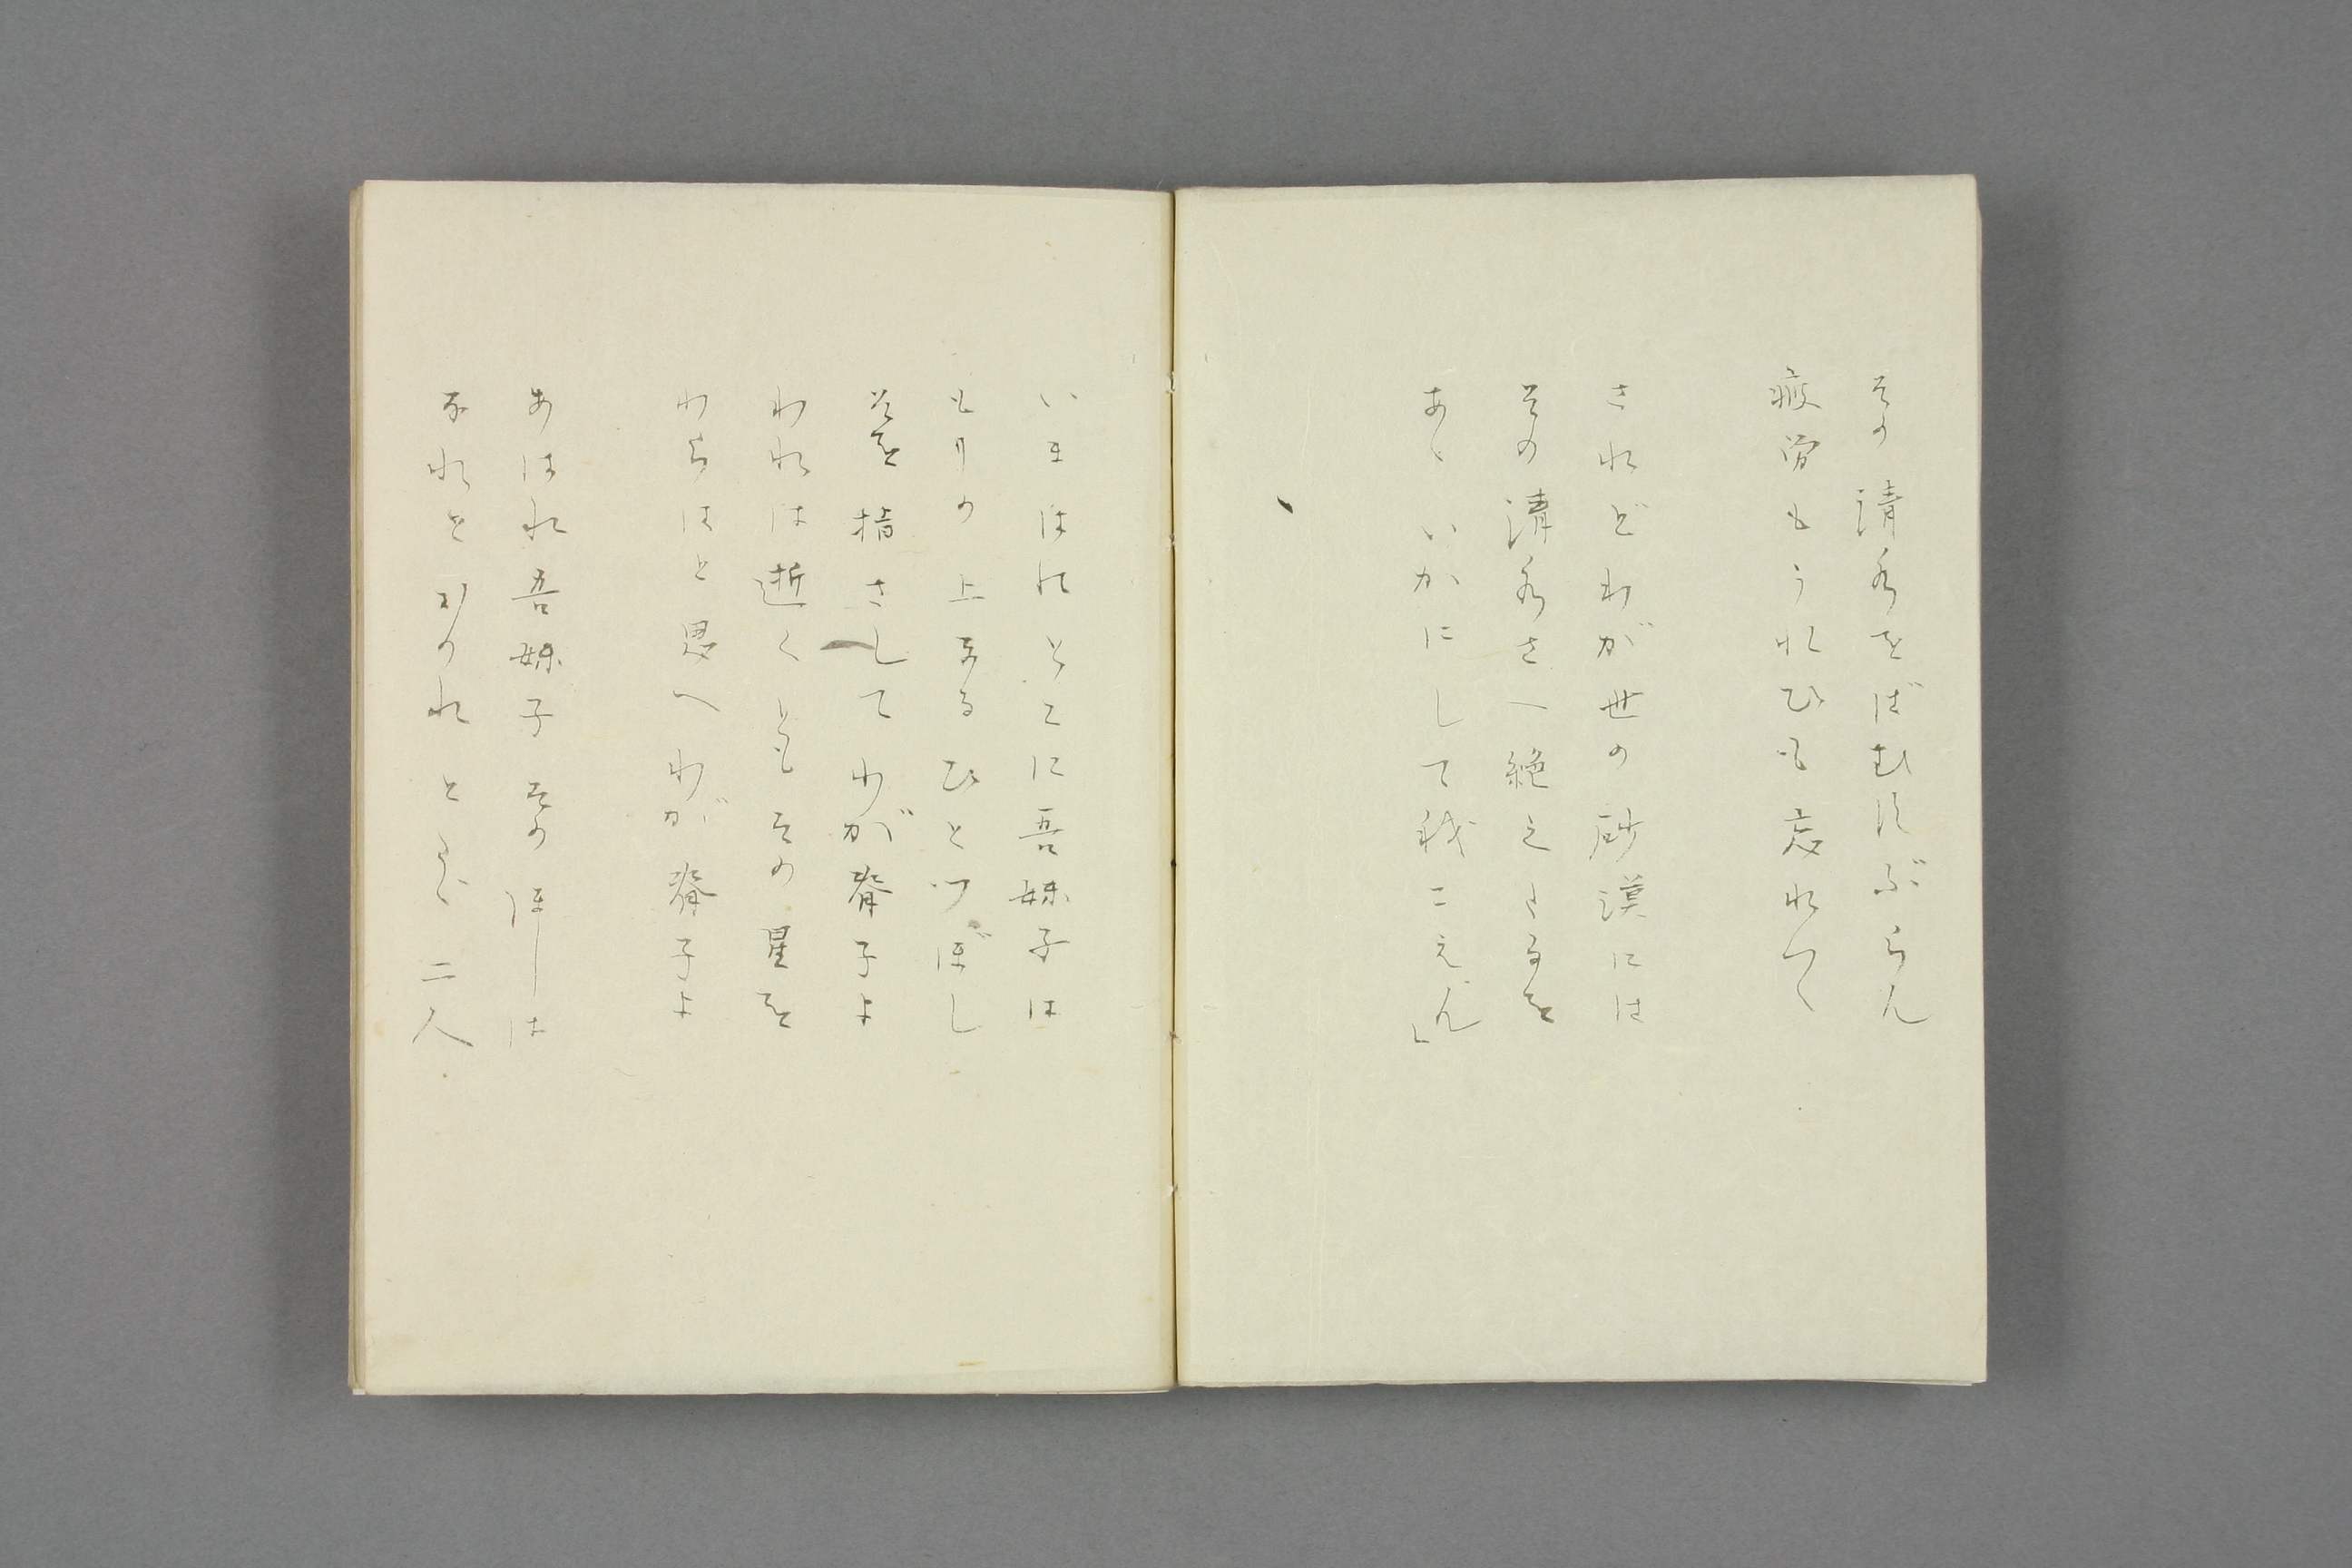 その清水をばむすぶらん
疲労もうれひも忘れつゝ
されどわが世の砂漠には
その清水さへ絶えたるを
あゝいかにして我こえん」
いまはのとこに吾妹子は
もりの上なるひとつぼし
そを指さしてわが脊子よ
われは逝くともその星を
わらはと思へわが脊子よ
あはれ吾妹子そのほしは
なれとおのれとたゞ二人